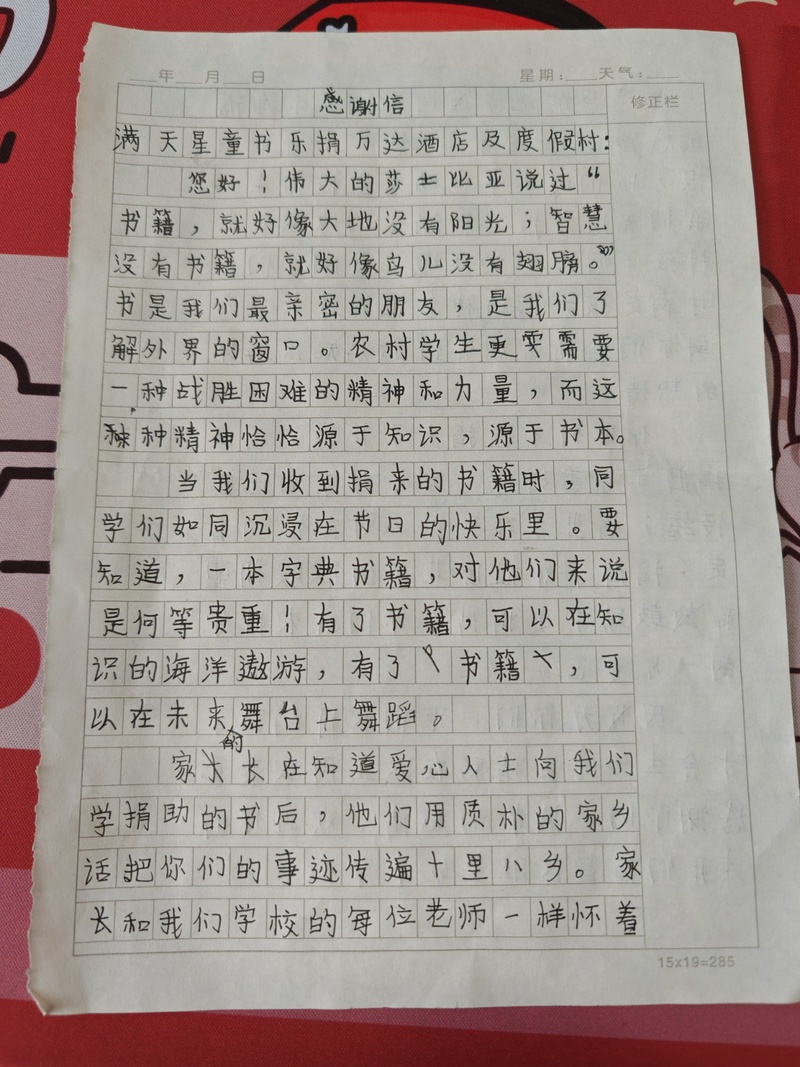 ___年___月___日 星期:____天气:____
感谢信
修正栏
满天星童书乐捐万达酒店及度假村:
您好!伟大的莎士比亚说过“
书籍,就好像大地没有阳光;智慧
没有书籍,就好像鸟儿没有翅膀。”
书是我们最亲密的朋友,是我们了
解外界的窗口。农村学生更需要
一种战胜困难的精神和力量,而这
种精神恰恰源于知识,源于书本。
当我们收到捐来的书籍时,同
学们如同沉浸在节日的快乐里。要
知道,一本字典书籍,对他们来说
是何等贵重!有了书籍,可以在知
识的海洋遨游,有了书籍,可
以在未来的舞台上舞蹈。
家长在知道爱心人士向我们
学捐助的书后,他们用质朴的家乡
话把你们的事迹传遍十里八乡。家
长和我们学校的每位老师一样怀着
15x19=285